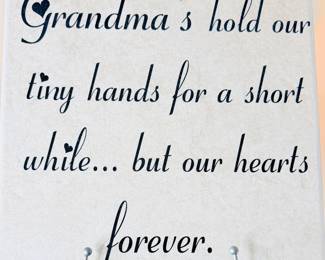 Grandma's hold our
tiny hands for a short
while... but our hearts
forever.